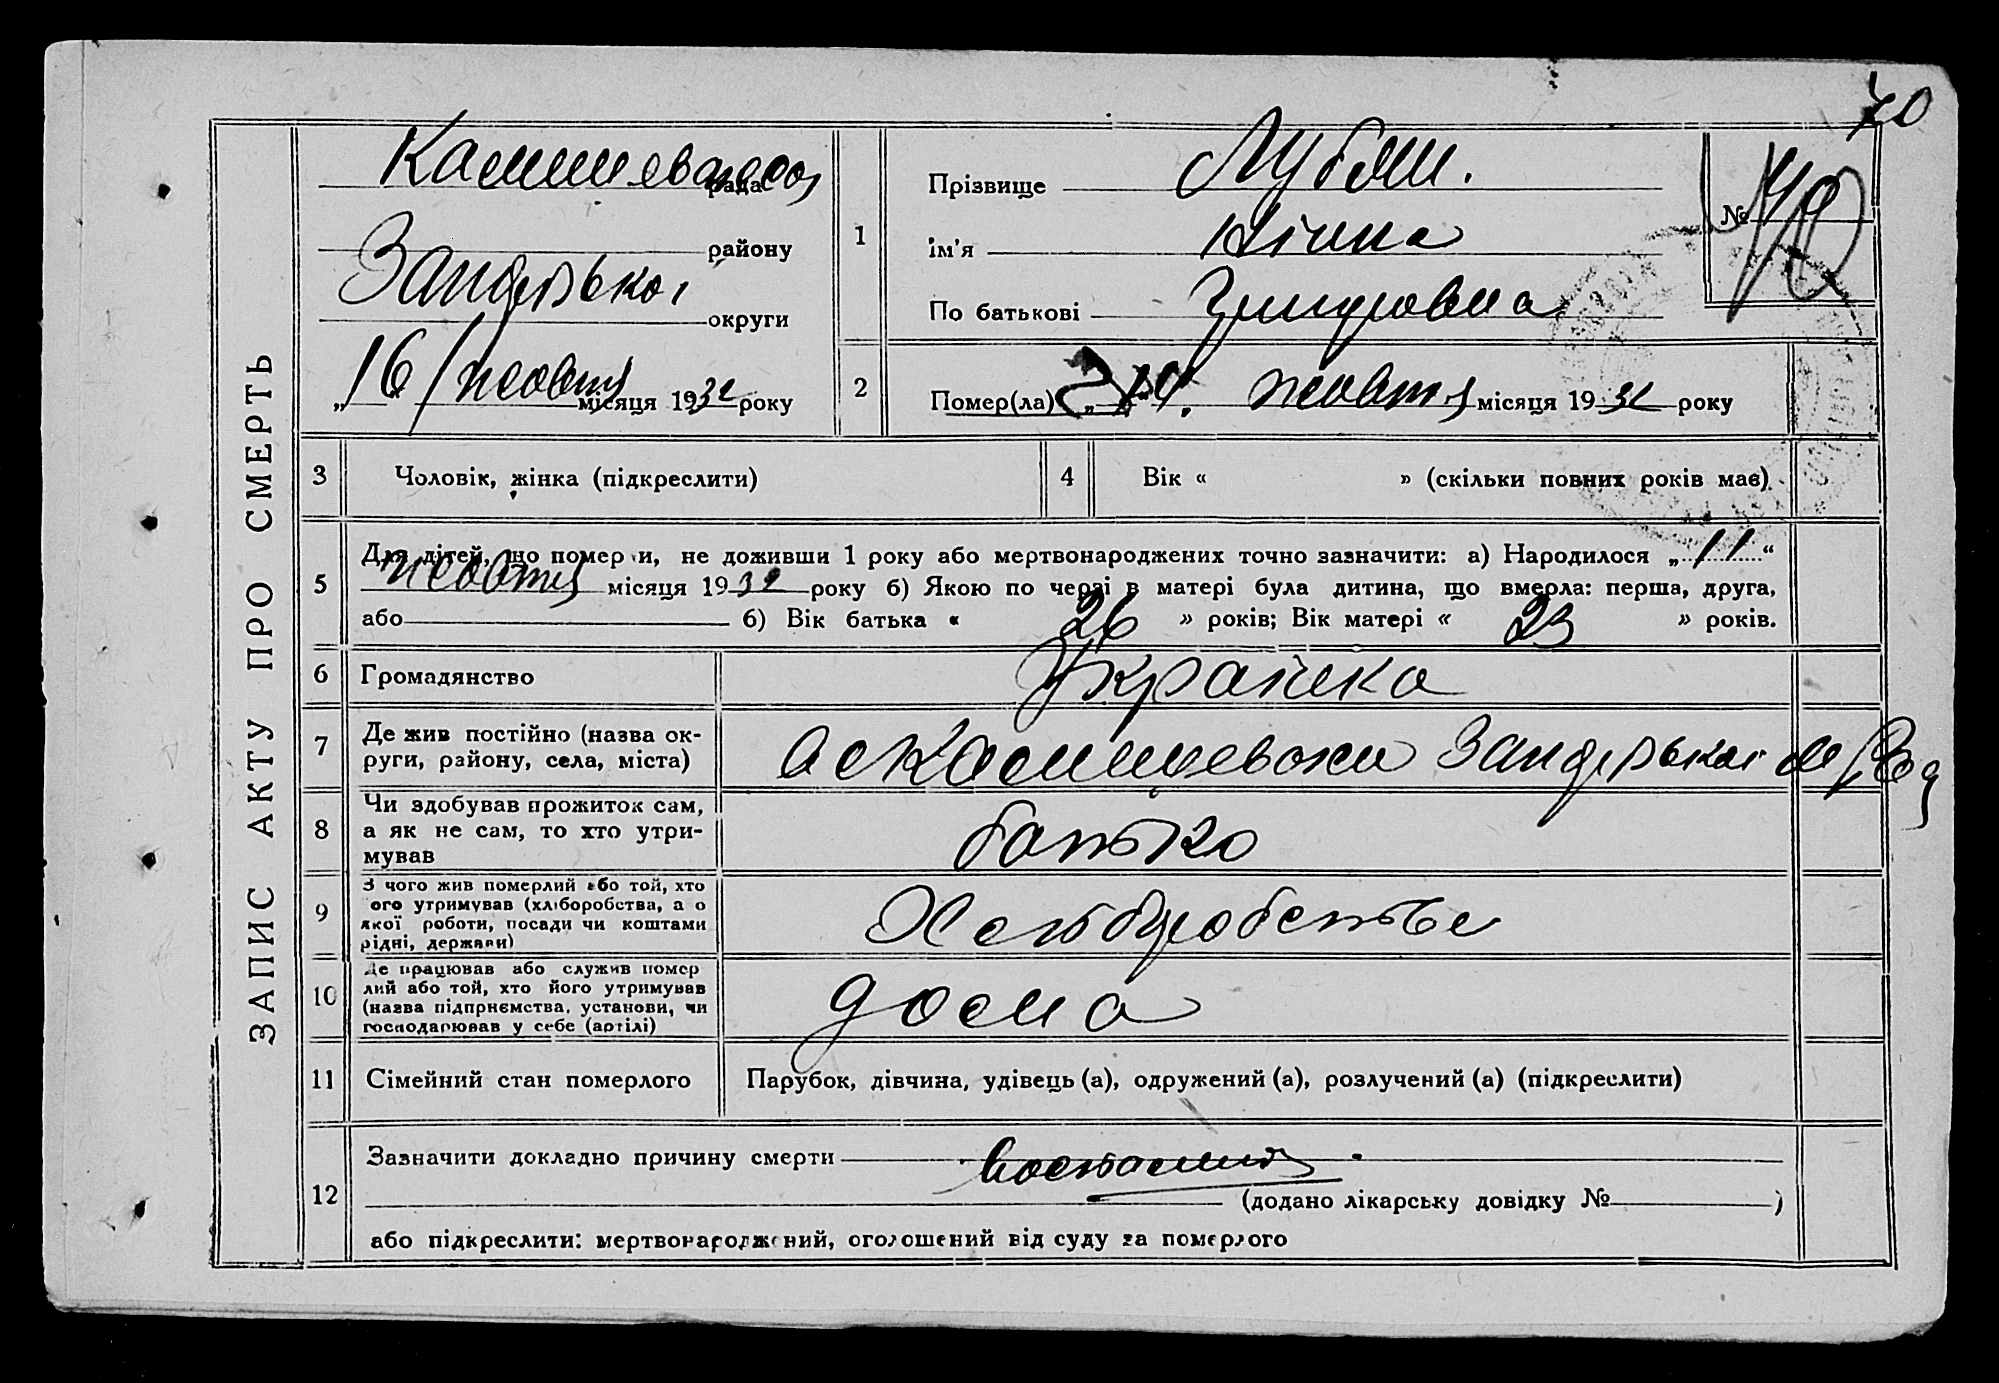 70
ЗАПИС АКТУ ПРО СМЕРТЬ
рада
району
округи
"16" жовтня місяця 1932 року
1
Прізвище
Ім'я Ніна
По батькові Григоровна
№ 70
2
Помер(ла) жовтня місяця 1932 року
3
Чоловік, жінка (підкреслити)
4
Вік « » (скільки повних років має)
5
Для дітей, що померли, не доживши 1 року або мертвонароджених точно зазначити: а) Народилося „11“
жовтня місяця 1932 року б) Якою по черзі в матері була дитина, що вмерла: перша, друга,
або 6) Вік батька « 26 » років; Вік матері « 23 » років.
6
Громадянство
Українка
7
Де жив постійно (назва ок-
руги, району, села, міста)
8
Чи здобував прожиток сам,
а як не сам, то хто утри-
мував
батько
9
З чого жив померлий або той, хто
його утримував (хліборобства, а о
якої роботи, посади чи коштами
рідні, держави)
10
Де працював або служив помер
лий або той, хто його утримував
(назва підприємства, установи, чи
господарював у себе (артілі)
дома
11
Сімейний стан померлого
Парубок, дівчина, удівець (а), одружений (а), розлучений (а) (підкреслити)
12
Зазначити докладно причину смерти
(додано лікарську довідку № )
або підкреслити: мертвонароджений, оголошений від суду за померлого